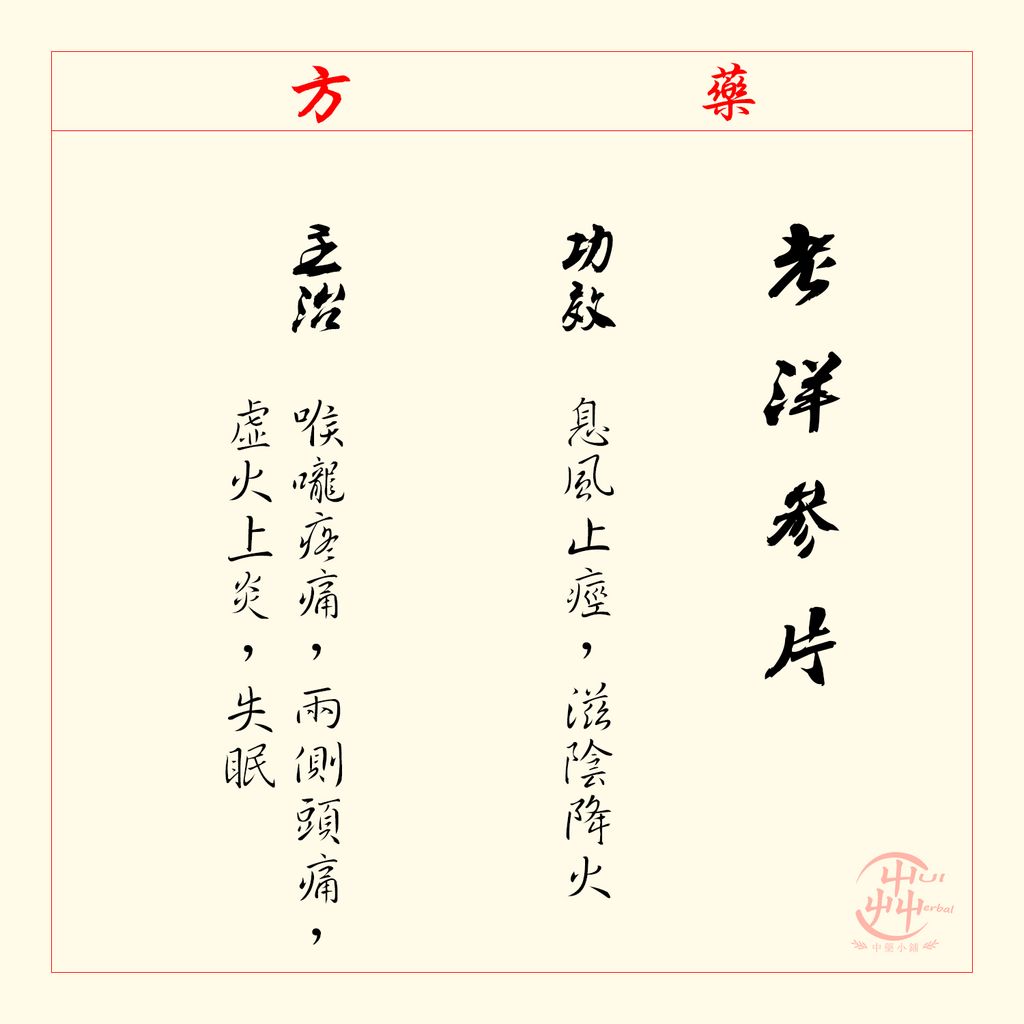 藥方
老洋參片
功效
息風止痙，滋陰降火
主治
喉嚨疼痛，兩側頭痛，
虛火上炎，失眠
HUI
Herbal
中藥小舖